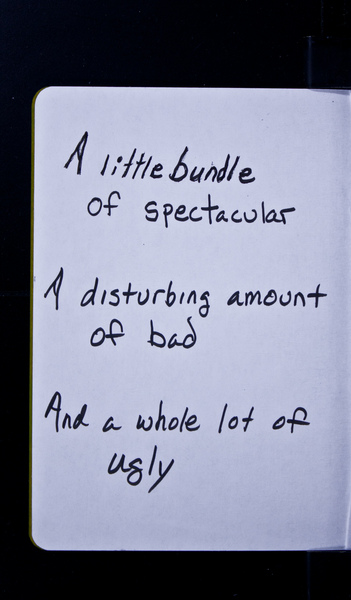 A little bundle
of spectacular
A disturbing amount
of bad
And a whole lot of
ugly